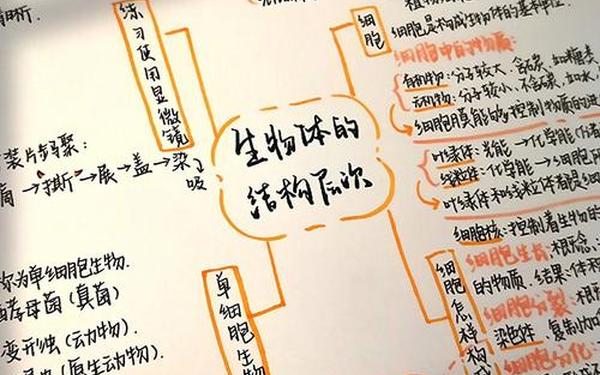 练习使用显微镜
细胞
细胞是构成生物体的基本单位
细胞中的物质:
有机物:分子较大、含碳、如糖类
无机物:分子较小、不含碳、如水、
细胞膜能够控制物质的进
生物体的
结构层次
叶绿体:光能→化学能
线粒体:化学能→细胞
叶绿体和线粒体都是细
装片步骤:
撕→展→盖→染
吸
细胞核:控制着生物的
细胞生长:
的物质、结果:体积
细胞分裂:
染色体、复制
细胞分化:
细胞怎样构成
单细胞生物
称为单细胞生物.
酵母菌(真菌)
变形虫(动物).
(原生动物).